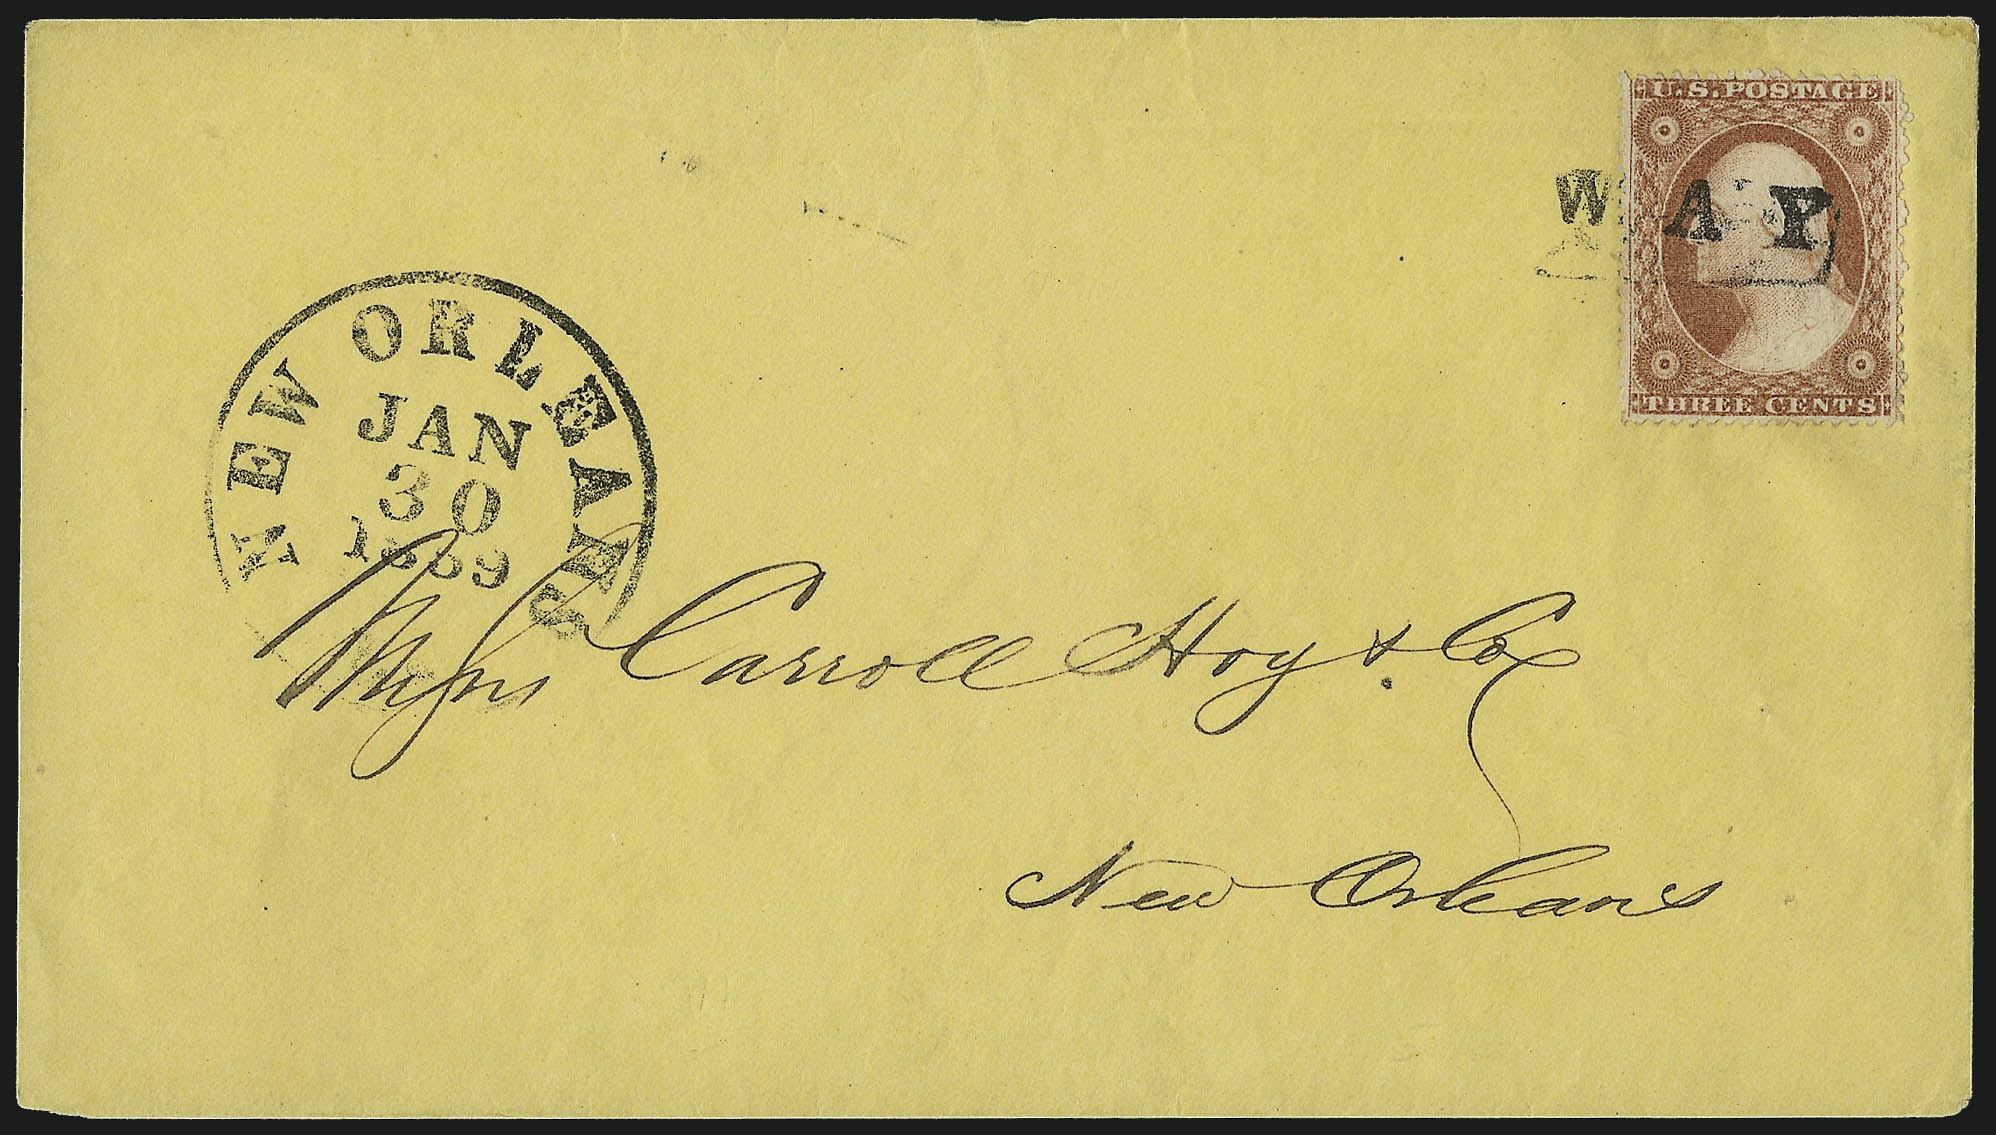 U.S.POSTAGE
WAY
THREE CENTS
NEW ORLEANS
JAN
30
1859
Messrs Carroll Hoy & Co
New Orleans